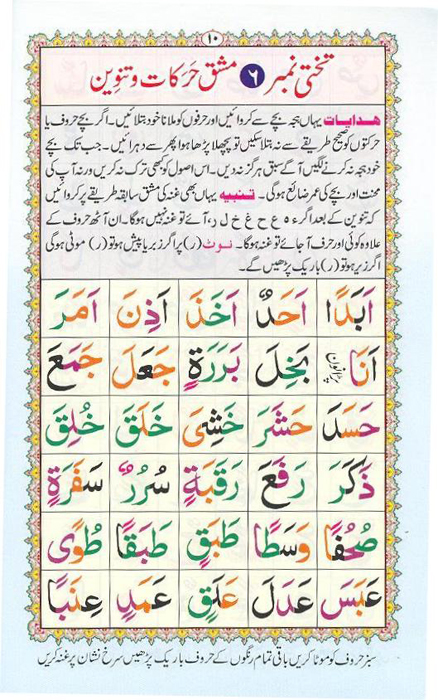 ۱۰
تختی نمبر ۶ مشق حرکات و تنوین
ھدایات یہاں ہجہ بچے سے کروائیں اور حرفوں کو ملانا خود بتلائیں۔ اگر بچے حروف یا
حرکتوں کو صحیح طریقے سے نہ بتلا سکیں تو پچھلا پڑھا ہوا پھر سے دہرائیں۔ جب تک بچے
خود ہجہ نہ کرنے لگیں آگے سبق ہرگز نہ دیں۔ اس اصول کو کبھی ترک نہ کریں ورنہ آپ کی
محنت اور بچے کی عمر ضائع ہوگی۔ تنبیہ یہاں بھی غنہ کی مشق سابقہ طریقے پر کروائیں
کہ تنوین کے بعد اگر ء ہ ع ح غ خ ل ر آئے تو غنہ نہیں ہوگا۔ ان آٹھ حروف کے
علاوہ کوئی اور حرف آجائے تو غنہ ہوگا۔ نوٹ (ر) پر اگر زبر یا پیش ہو تو (ر) موٹی ہوگی
اگر زیر ہو تو (ر) باریک پڑھیں گے۔
اَبَدًا اَحَدٌ اَخَذَ اَذِنَ اَمَرَ
اَنَا بَخِلَ بَرَرَةٍ جَعَلَ جَمَعَ
حَسَدَ حَشَرَ خَشِيَ خَلَقَ خُلِقَ
ذَكَرَ رَفَعَ رَقَبَةٍ سُرُرٌ سَفَرَةٍ
صُحُفًا وَسَطًا طَبَقٍ طَبَقًا طُوًى
عَبَسَ عَدَلَ عَلَقٍ عَمَدٍ عِنَبًا
سبز حروف کو موٹا کریں باقی تمام رنگوں کے حروف باریک پڑھیں سرخ نشان پر غنہ کریں